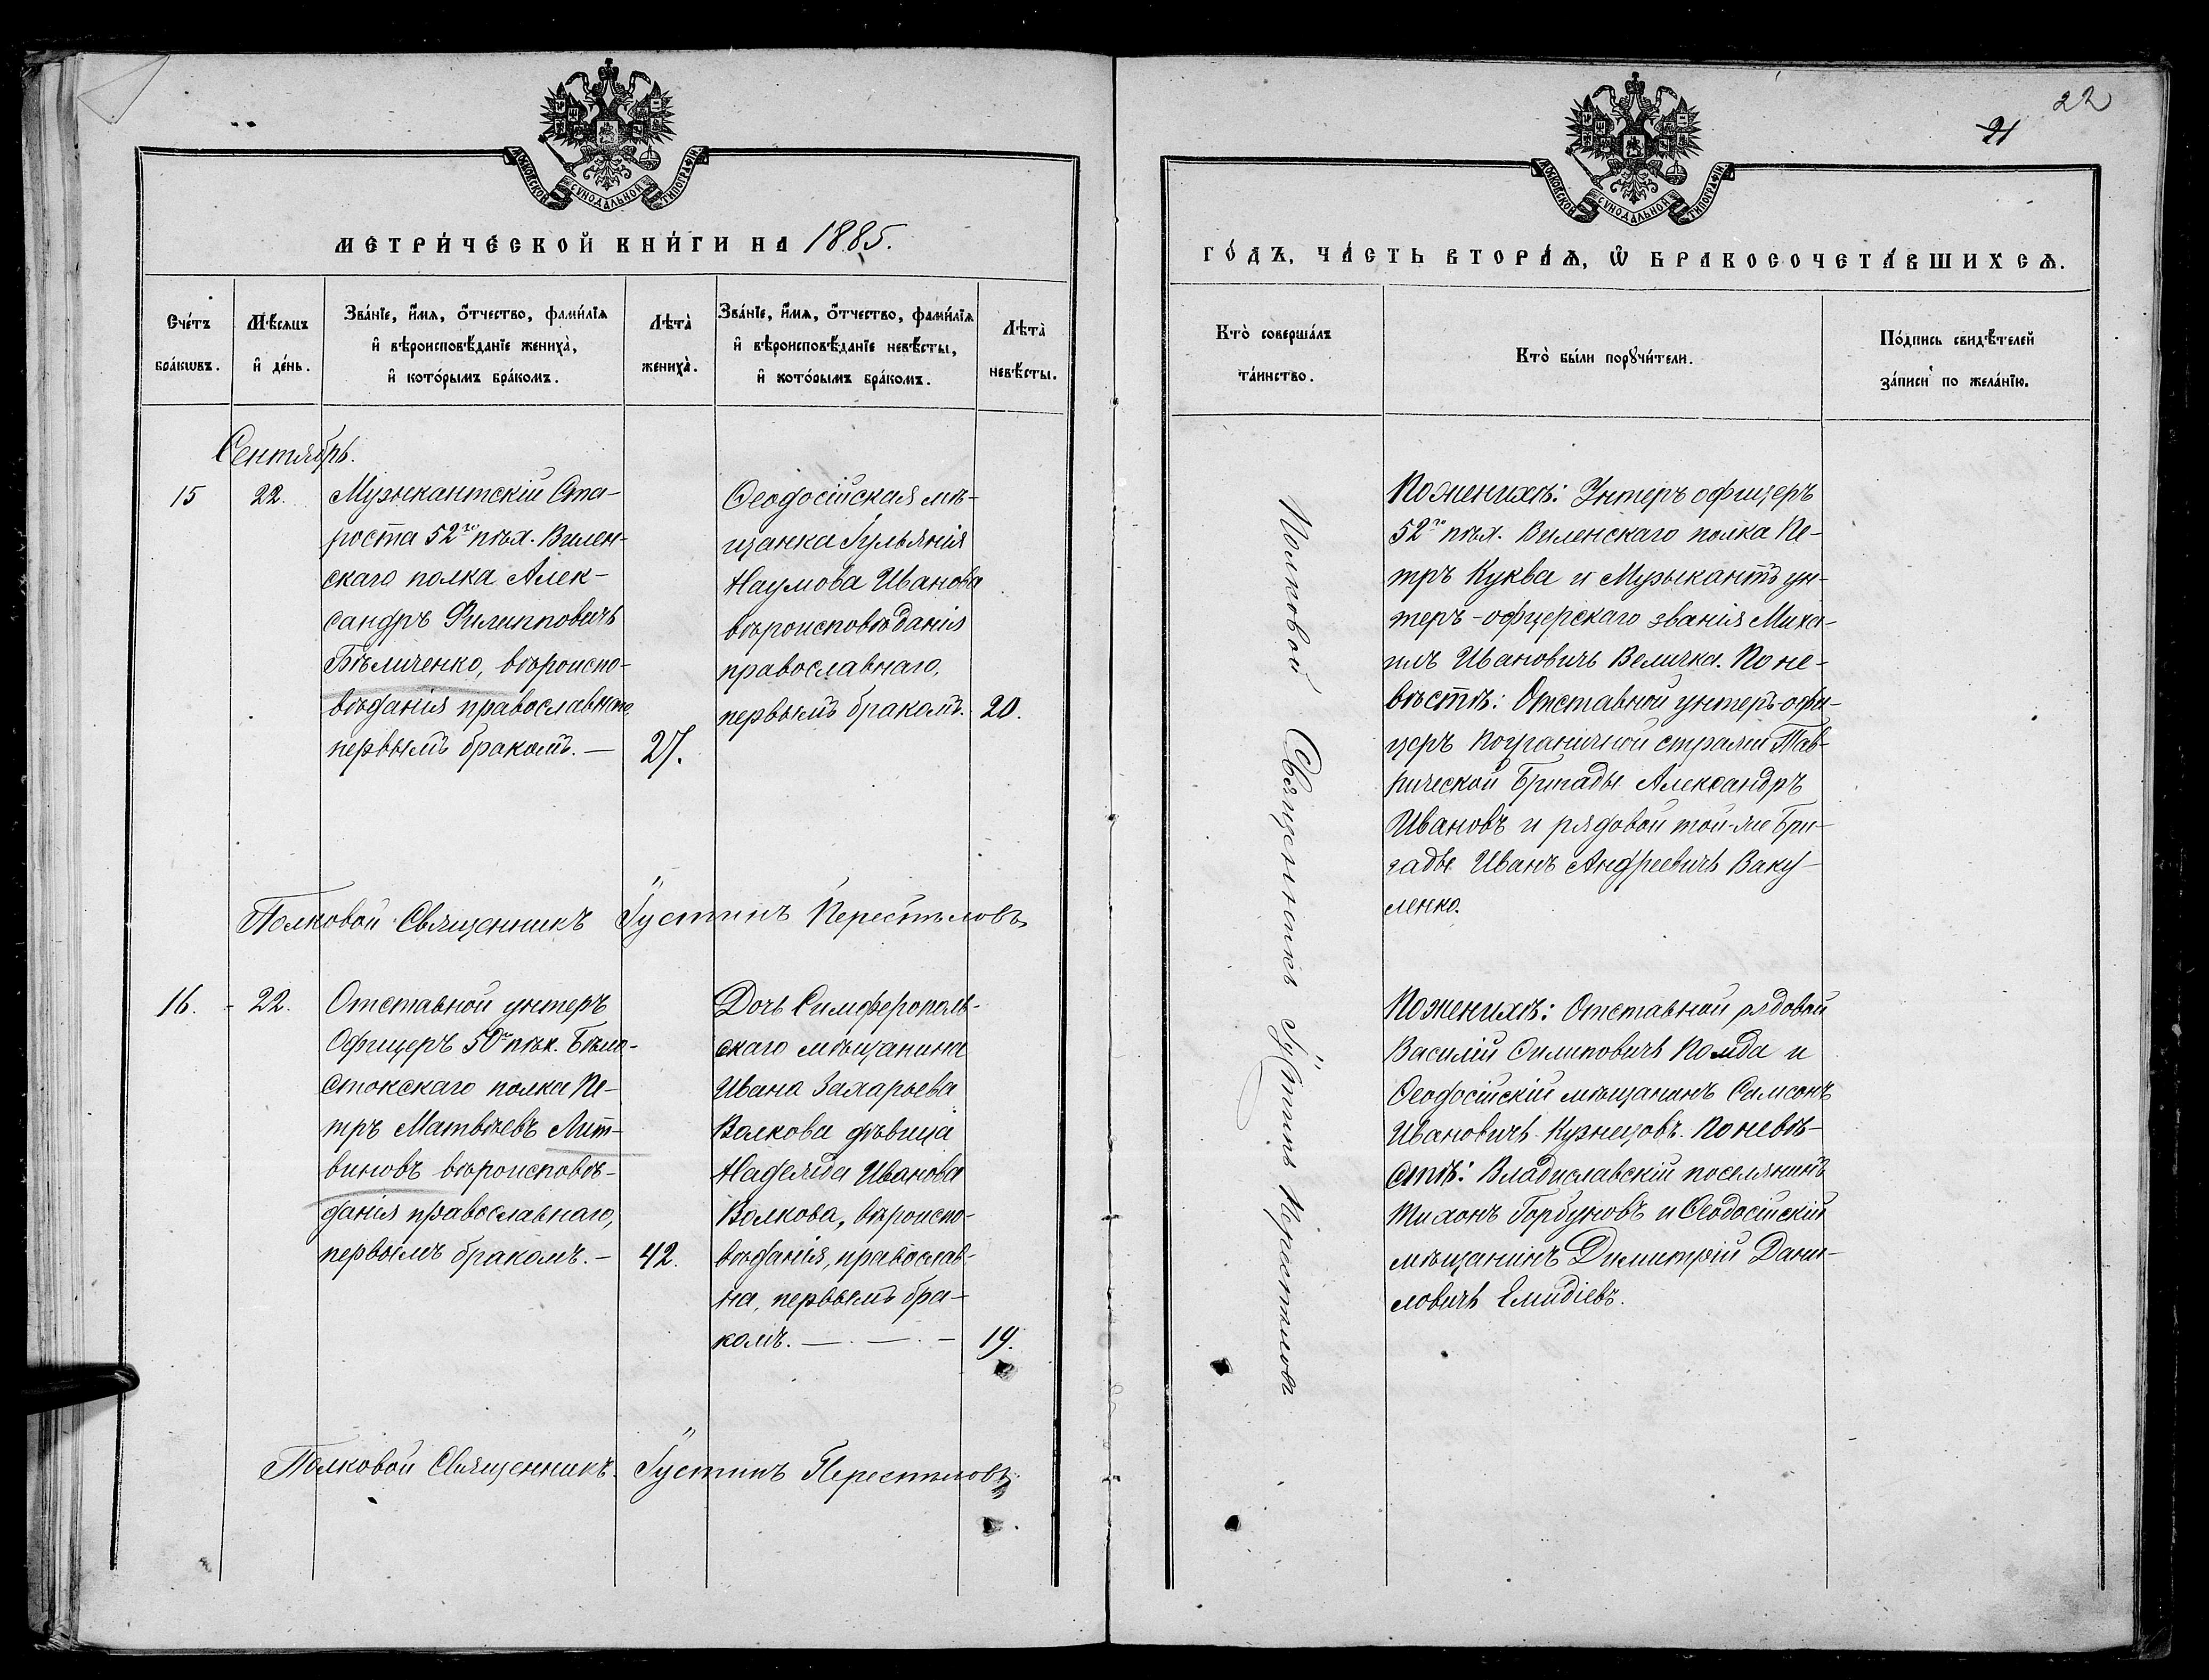 МОСКОВСКОЙ СѴНОДАЛЬНОЙ ТИПОГРАФІИ
МЕТРИ́ЧЕСКОЙ КНИ́ГИ НА 1885.
Сче́тъ бра́кѡвъ.
Мѣ́сѧцъ и҆ де́нь.
Зва́нїе, и҆́мѧ, ѻ҆́тчество, фами́лїѧ
и҆ вѣроисповѣ́данїе жениха̀,
и҆ кото́рымъ бра́комъ.
Лѣта̀ жениха̀.
Зва́нїе, и҆́мѧ, ѻ҆́тчество, фами́лїѧ
и҆ вѣроисповѣ́данїе невѣ́сты,
и҆ кото́рымъ бра́комъ.
Лѣта̀ невѣ́сты.
Сентябрь.
15
22.
Музыкантскій Ста-
роста 52го пѣх. Вилен-
скаго полка Алек-
сандръ Филипповичъ
Бѣличенко, вѣроиспо-
вѣданія православнаго,
первымъ бракомъ. —
27.
Ѳеодосійская мѣ-
щанка Іульянія
Наумова Иванова
вѣроисповѣданія
православнаго,
первымъ бракомъ.
20.
Полковой Священникъ Іустинъ Перестиловъ
16.
22.
Отставной унтеръ
Офицеръ 50го пѣх. Бѣло-
стокскаго полка Пе-
тръ Матвѣевъ Лит-
виновъ вѣроисповѣ-
данія православнаго,
первымъ бракомъ. —
42.
Дочь Симферополь-
скаго мѣщанина
Ивана Захарьева
Волкова дѣвица
Надежда Иванова
Волкова, вѣроиспо-
вѣданія, православ-
на, первымъ бра-
комъ. — . — . —
19.
Полковой Священникъ Іустинъ Перестиловъ
22
21
МОСКОВСКОЙ СѴНОДАЛЬНОЙ ТИПОГРАФІИ
ГО́ДЪ, ЧА́СТЬ ВТОРА́Ѧ, Ѽ БРАКОСОЧЕТА́ВШИХСѦ.
Кто̀ соверша́лъ
та́инство.
Кто̀ бы́ли порꙋчи́тели.
По́дпись свидѣ́телей
за́писи по жела́нїю.
Полковой Священникъ Іустинъ Перестиловъ
По женихѣ: Унтеръ офицеръ
52го пѣх. Виленскаго полка Пе-
тръ Куква и Музыкантъ ун-
теръ-офцерскаго званія Миха-
илъ Ивановичъ Величка. По не-
вѣстѣ: Отставной унтеръ-офи-
церъ Пограничной стражи Тав-
рической Бригады Александръ
Ивановъ и рядовой той-же Бри-
гады Иванъ Андреевичъ Ваку-
ленко.
По женихѣ: Отставной рядовой
Василій Филиповичъ и
Ѳеодосійскій мѣщанинъ Симсонъ
Ивановичъ Кузнецовъ. По невѣ-
стѣ: Владиславскій поселянинъ
Тихонъ Горбуновъ и Ѳеодосійскій
мѣщанинъ Димитрій Дани-
ловичъ Емидіевъ.